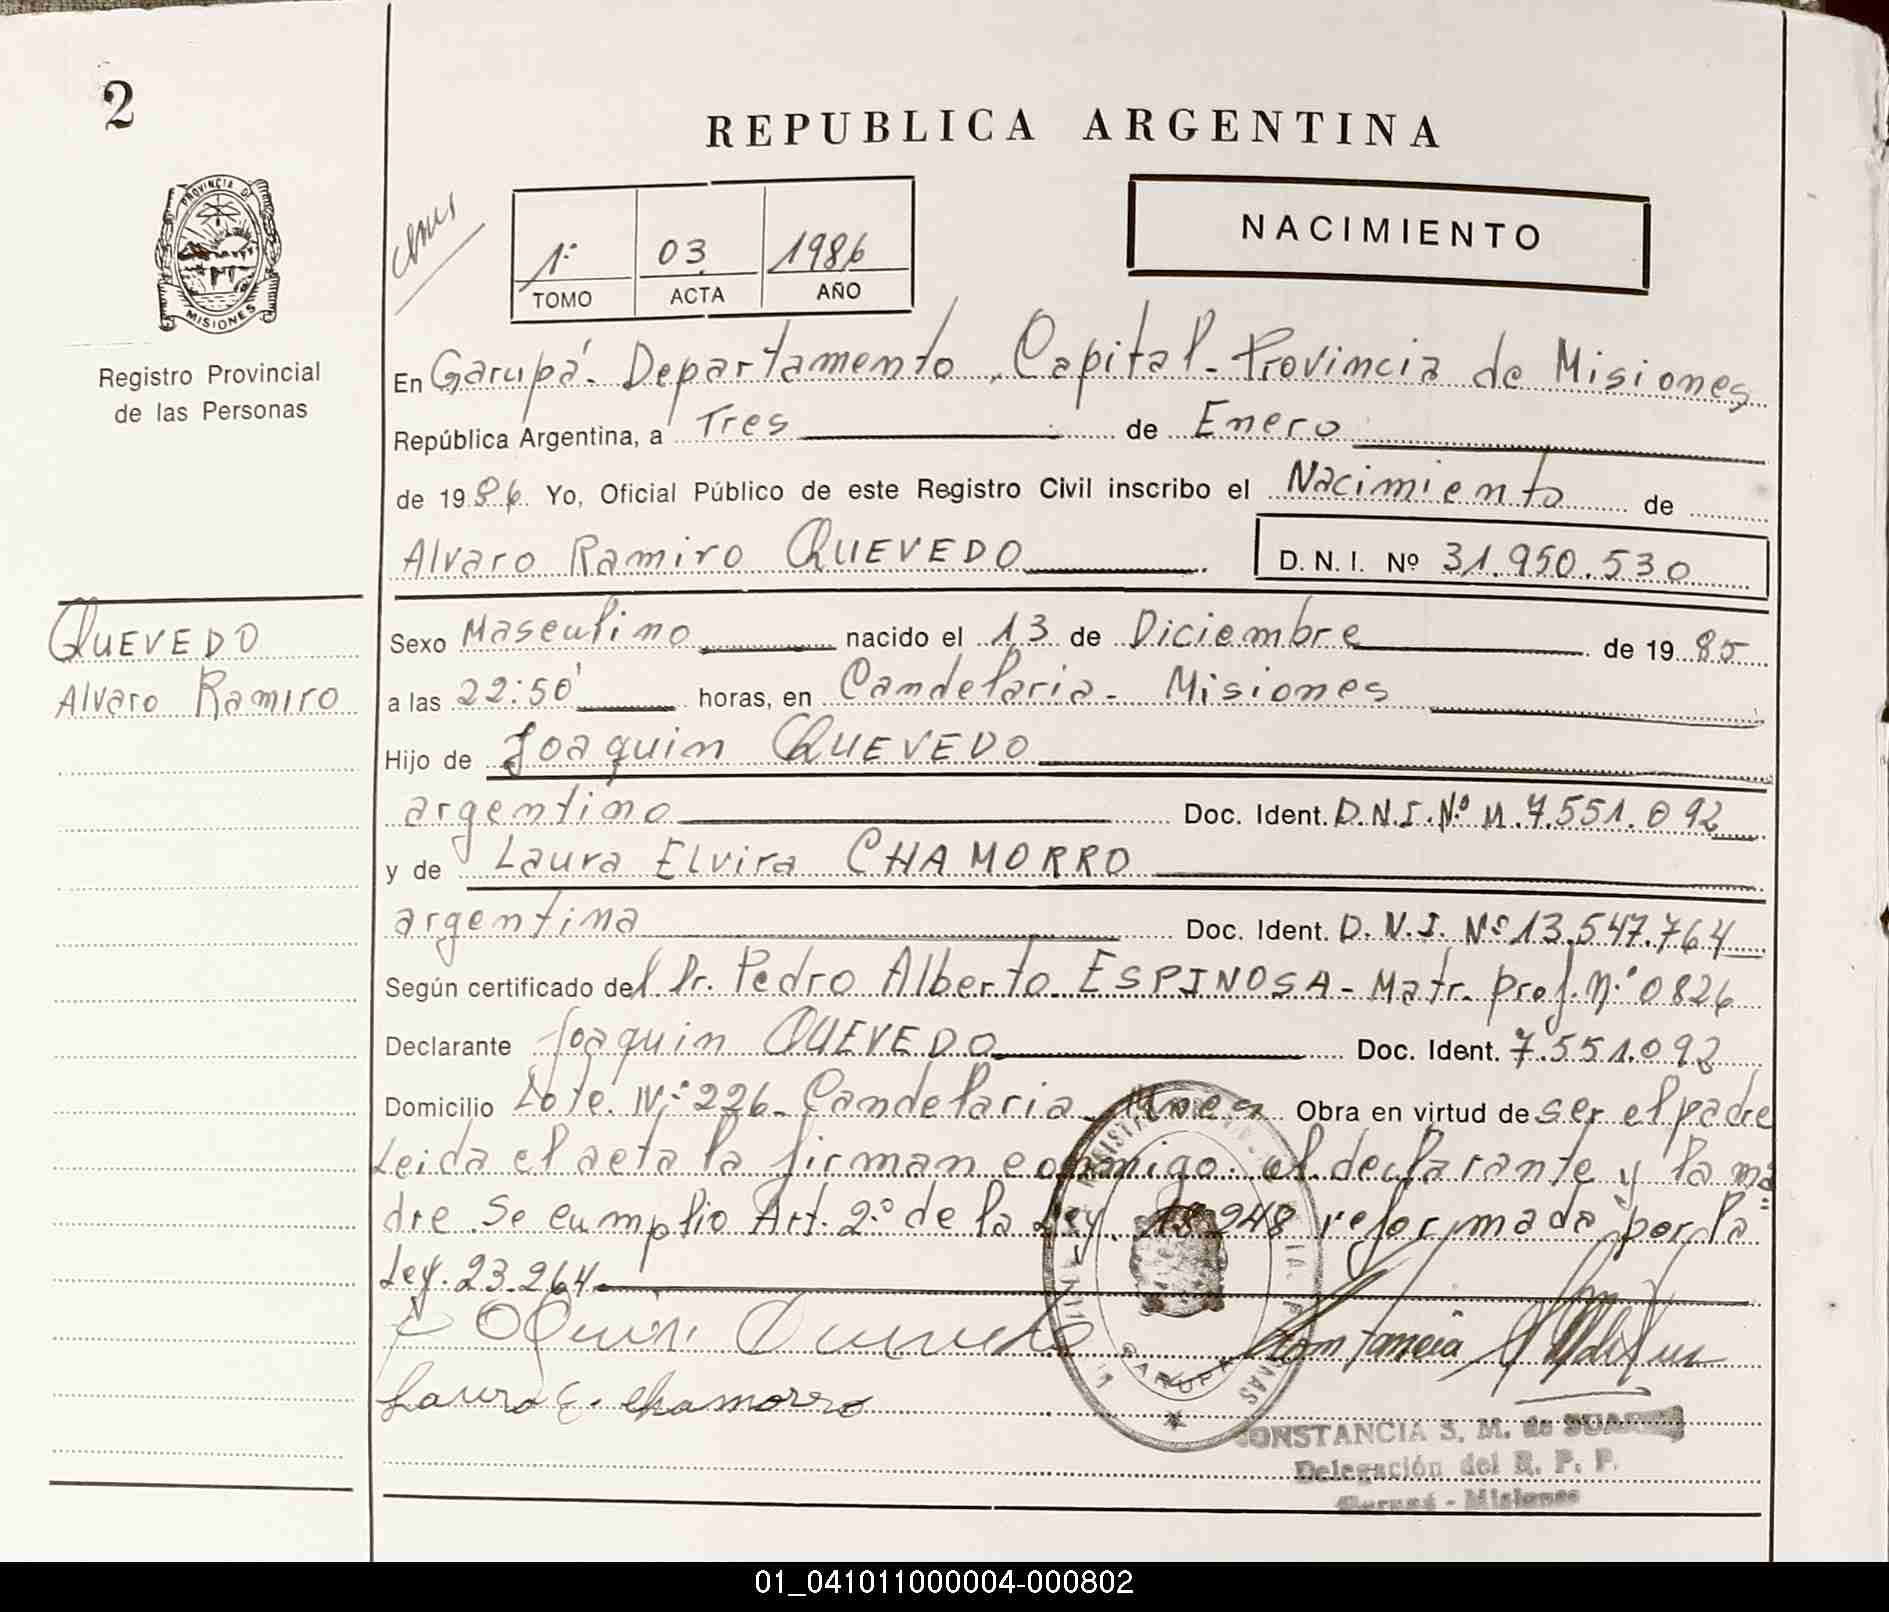 2
REPUBLICA ARGENTINA
PROVINCIA DE
MISIONES
Registro Provincial
de las Personas
1º 03 1986
TOMO ACTA AÑO
NACIMIENTO
En Garupá. Departamento Capital - Provincia de Misiones
República Argentina, a Tres de Enero
de 1986. Yo, Oficial Público de este Registro Civil inscribo el Nacimiento de
Alvaro Ramiro QUEVEDO D. N. I. Nº 31.950.530
QUEVEDO
Alvaro Ramiro
Sexo Masculino nacido el 13 de Diciembre de 1985
a las 22:50' horas, en Candelaria - Misiones
Hijo de Joaquin QUEVEDO
argentino Doc. Ident. D.N.I. Nº M. 7.551.092
y de Laura Elvira CHAMORRO
argentina Doc. Ident. D.N.I. Nº 13.547.764
Según certificado del Dr. Pedro Alberto ESPINOSA - Matr. prof. nº 0826
Declarante Joaquin QUEVEDO Doc. Ident. 7.551.092
Domicilio Lote Nº 226 - Candelaria Obra en virtud de ser el padre
Leida el acta la firman conmigo el declarante y la ma
dre. Se cumplio Art. 2º de la Ley 18.248 reformada por la
Ley. 23.264
Laura E. Chamorro
GARUPA
CONSTANCIA S. M. de SUAREZ
Delegación del R. P. P.
Garupá - Misiones
01_041011000004-000802